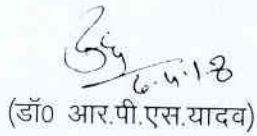 6.4.18
(डॉ0 आर.पी.एस.यादव)